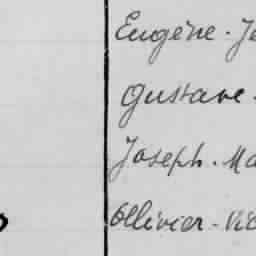 Eugène - Je
Gustave -
Joseph - Ma
Ollivier - Vic